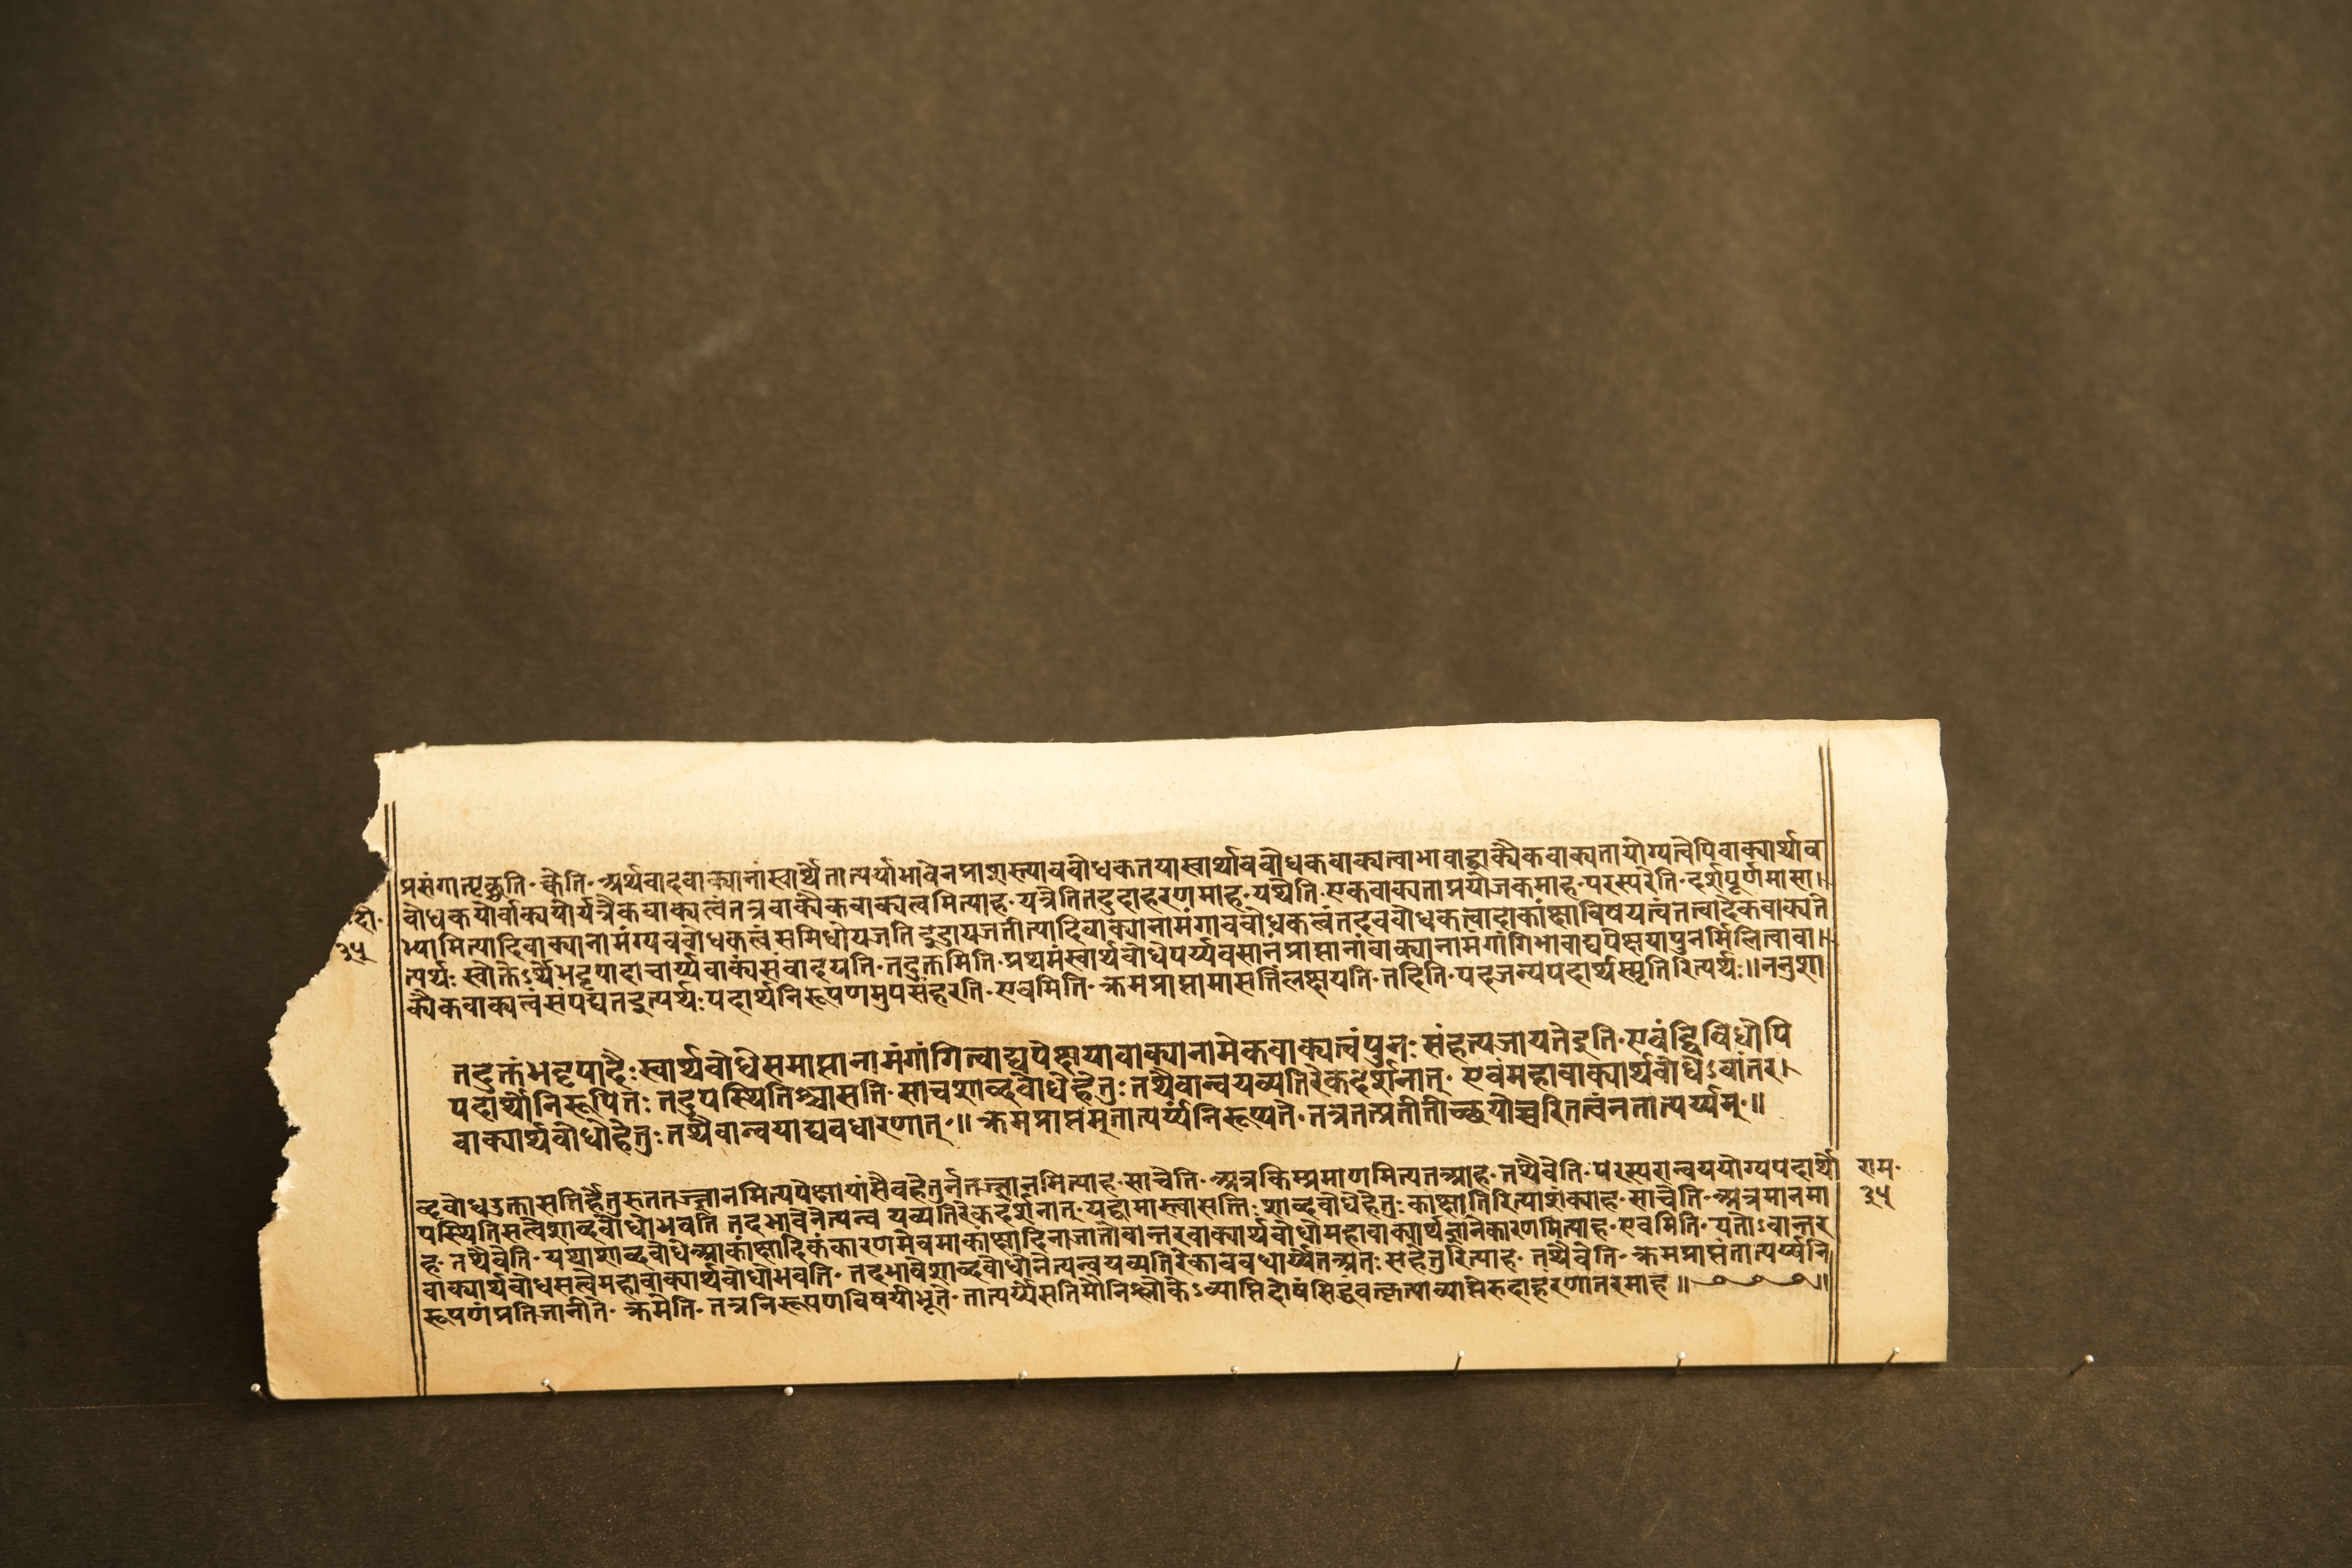 प्रसंगात्पृच्छति· क्वेति· अर्थवादवाक्यानांस्वार्थेतात्पर्याभावेनप्राशस्त्यावबोधकतयास्वार्थावबोधकवाक्यत्वाभावाद्वाक्यैकवाक्यतायोग्यत्वेपिवाक्यार्थाव
बोधकयोर्वाक्ययोर्यत्रैकवाक्यत्वंतत्रवाक्यैकवाक्यत्वमित्याह· यत्रेतितदुदाहरणमाह· यथेति· एकवाक्यताप्रयोजकमाह· परस्परेति· दर्शपूर्णमासा।
भ्यामित्यादिवाक्यानामंग्यवबोधकत्वंसमिधोयजति इडायजतीत्यादिवाक्यानामंगावबोधकत्वंतदवबोधकत्वादाकांक्षाविषयत्वंतत्वादेकवाक्यते
त्यर्थः स्वोक्तेऽर्थेभट्टपादाचार्य्यवाक्यंसंवादयति· तदुक्तमिति· प्रथमंस्वार्थबोधेपर्य्यवसानंप्राप्तानांवाक्यानामंगांगिभावाद्यपेक्षयापुनर्मिलित्वावा।
क्यैकवाक्यत्वंसंपद्यतइत्यर्थः पदार्थनिरूपणमुपसंहरति· एवमिति· क्रमप्राप्तामासत्तिंलक्षयति· तदिति· पदजन्यपदार्थस्मृतिरित्यर्थः॥ननुशा
दो·
३५
तदुक्तंभट्टपादैः स्वार्थबोधेसमाप्तानामंगांगित्वाद्यपेक्षयावाक्यानामेकवाक्यत्वंपुनः संहत्यजायतेइति· एवंद्विविधोपि
पदार्थोनिरूपितः तदुपस्थितिश्चासत्ति· साचशाब्दबोधेहेतुः तथैवान्वयव्यतिरेकदर्शनात्· एवंमहावाक्यार्थबोधेऽवांतर।
वाक्यार्थबोधोहेतुः तथैवान्वयाद्यवधारणात्·॥ क्रमप्राप्तंमुतात्पर्य्यंनिरूप्यते· तत्रतत्प्रतीतीच्छयोच्चरितत्वंनतात्पर्य्यम्·॥
ब्दबोधउक्तासत्तिर्हेतुरुततज्ज्ञानमित्यपेक्षायांसैवहेतुर्नतज्ज्ञानमित्याह· साचेति· अत्रकिम्प्रमाणमित्यतआह· तथैवेति· परस्परान्वययोग्यपदार्थो
पस्थितिसत्वेशाब्दबोधोभवति तदभावेनेत्यन्व यव्यतिरेकदर्शनात्· यद्वामास्त्वासत्तिः शाब्दबोधेहेतुः काक्षतिरित्याशंक्याह· साचेति· अत्रमानमा
ह· तथैवेति· यथाशाब्दबोधेआकांक्षादिकंकारणमेवमाकांक्षादिनाजातोवान्तरवाक्यार्थबोधोमहावाक्यार्थज्ञानेकारणमित्याह· एवमिति· यतोऽवान्तर
वाक्यार्थबोधसत्वेमहावाक्यार्थबोधोभवति· तदभावेशाब्दबोधोनेत्यन्वयव्यतिरेकाववधार्य्येतेअतः सहेतुरित्याह· तथैवेति· क्रमप्राप्तंतात्पर्य्यनि
रूपणंप्रतिजानीते· क्रमेति· तत्रनिरूपणविषयीभूते· तात्पर्य्येसतिमौनिश्लोकेऽव्याप्तिदोषंसिद्धवत्कृत्याव्याप्तेरुदाहरणांतरमाह ॥
राम·
३५